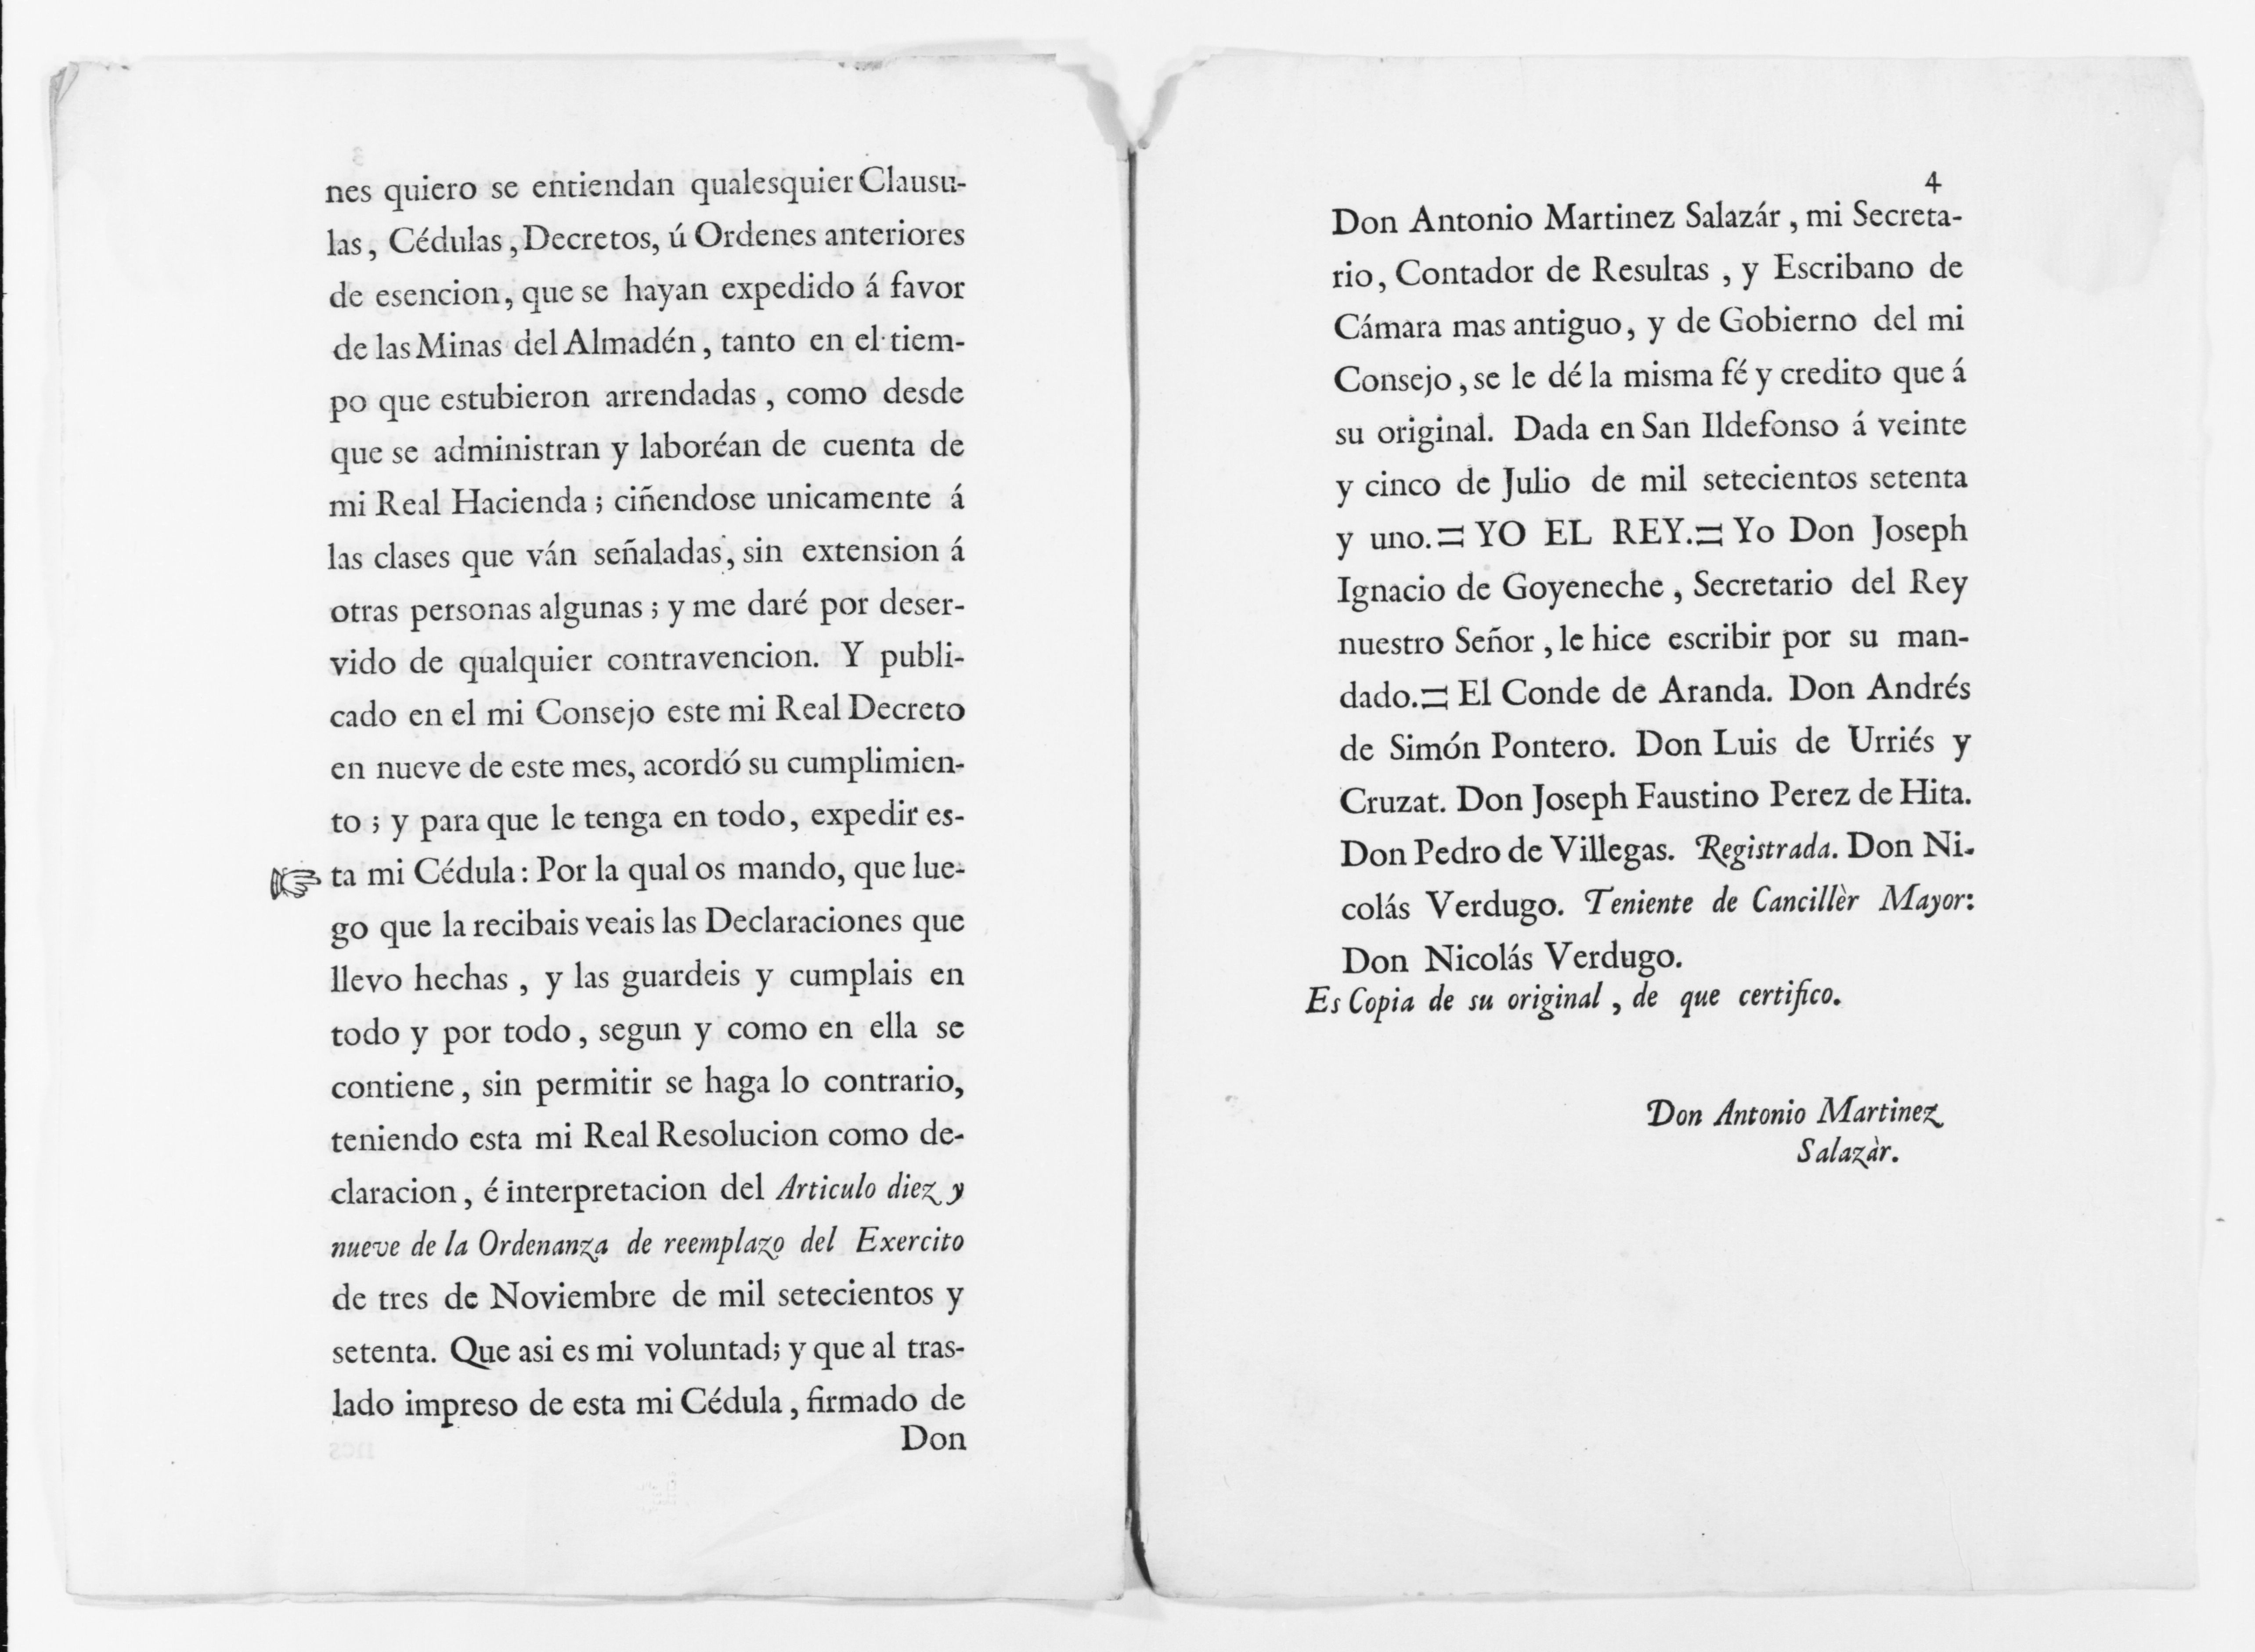 nes quiero se entiendan qualesquier Clausu-
las, Cédulas, Decretos, ú Ordenes anteriores
de esencion, que se hayan expedido á favor
de las Minas del Almadén, tanto en el tiem-
po que estubieron arrendadas, como desde
que se administran y laboréan de cuenta de
mi Real Hacienda; ciñendose unicamente á
las clases que ván señaladas, sin extension á
otras personas algunas; y me daré por deser-
vido de qualquier contravencion. Y publi-
cado en el mi Consejo este mi Real Decreto
en nueve de este mes, acordó su cumplimien-
to; y para que le tenga en todo, expedir es-
☞ ta mi Cédula: Por la qual os mando, que lue-
go que la recibais veais las Declaraciones que
llevo hechas, y las guardeis y cumplais en
todo y por todo, segun y como en ella se
contiene, sin permitir se haga lo contrario,
teniendo esta mi Real Resolucion como de-
claracion, é interpretacion del Articulo diez y
nueve de la Ordenanza de reemplazo del Exercito
de tres de Noviembre de mil setecientos y
setenta. Que asi es mi voluntad; y que al tras-
lado impreso de esta mi Cédula, firmado de
Don
4
Don Antonio Martinez Salazár, mi Secreta-
rio, Contador de Resultas, y Escribano de
Cámara mas antiguo, y de Gobierno del mi
Consejo, se le dé la misma fé y credito que á
su original. Dada en San Ildefonso á veinte
y cinco de Julio de mil setecientos setenta
y uno. = YO EL REY. = Yo Don Joseph
Ignacio de Goyeneche, Secretario del Rey
nuestro Señor, le hice escribir por su man-
dado. = El Conde de Aranda. Don Andrés
de Simón Pontero. Don Luis de Urriés y
Cruzat. Don Joseph Faustino Perez de Hita.
Don Pedro de Villegas. Registrada. Don Ni-
colás Verdugo. Teniente de Cancillèr Mayor:
Don Nicolás Verdugo.
Es Copia de su original, de que certifico.
Don Antonio Martinez
Salazàr.